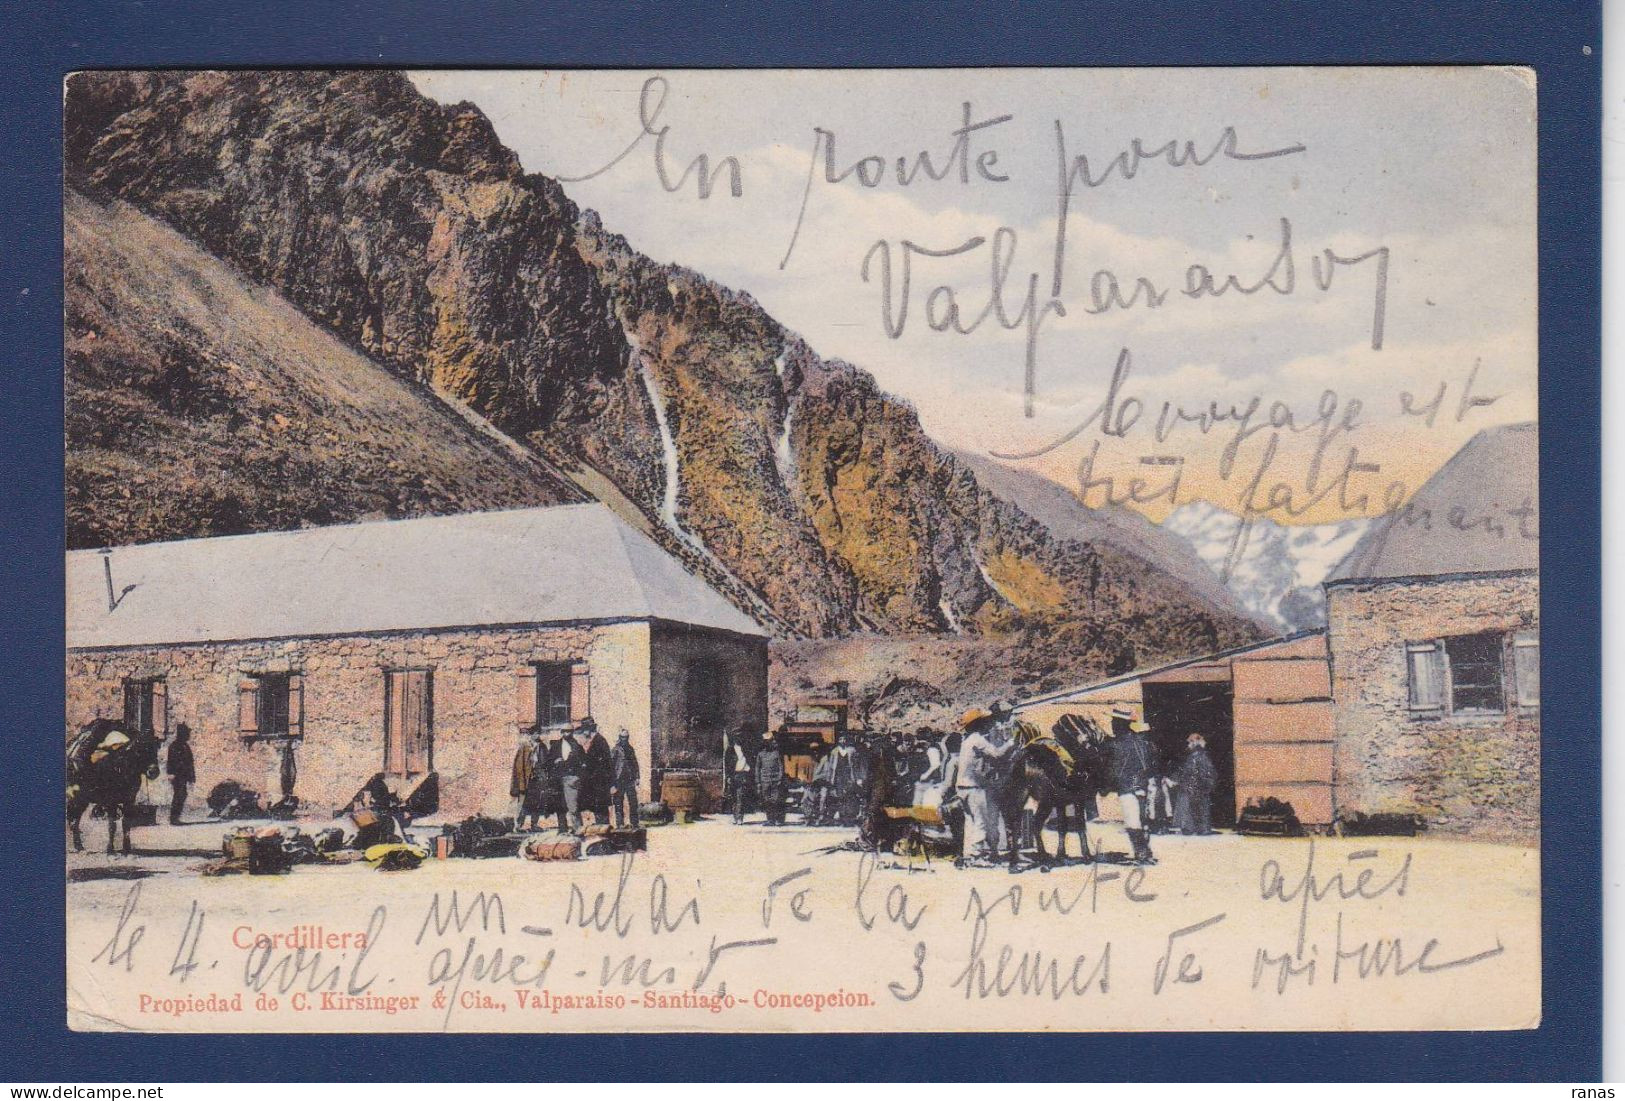 En route pour
Valparaiso,
le voyage est
très fatiguant
un relai de la route. après
le 4. avril. après-midi, 3 heures de voiture
Cordillera
Propiedad de C. Kirsinger & Cia., Valparaiso-Santiago-Concepcion.
ranas